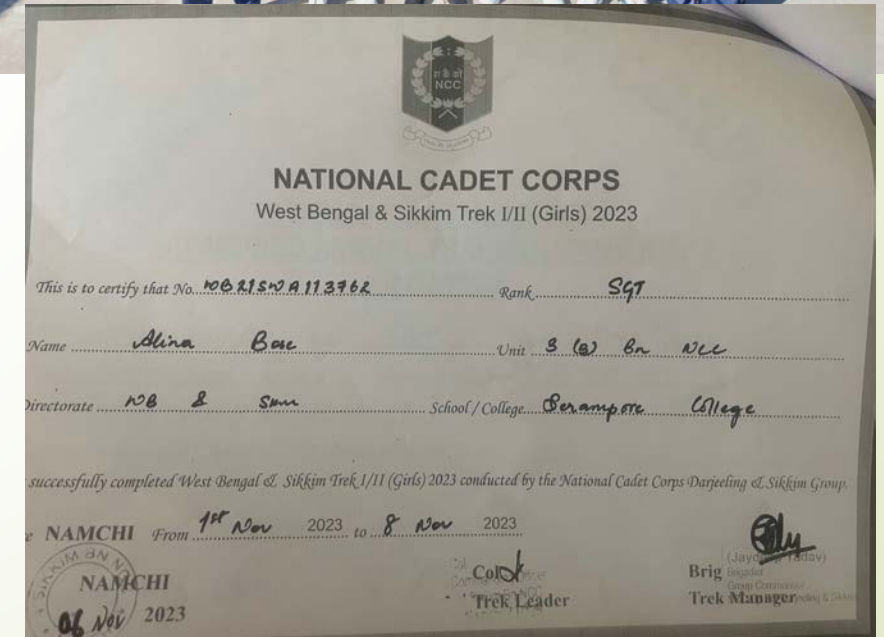 रा कै को
NCC
NATIONAL CADET CORPS
West Bengal & Sikkim Trek I/II (Girls) 2023
This is to certify that No. WB21SWA113762 Rank SGT
Name Alina Bose Unit 3 (B) Bn NCC
Directorate WB & Skm School / College Serampore College
successfully completed West Bengal & Sikkim Trek I/II (Girls) 2023 conducted by the National Cadet Corps Darjeeling & Sikkim Group.
NAMCHI From 1st Nov 2023 to 8 Nov 2023
SIKKIM BN NCC
NAMCHI
08 Nov 2023
Col
Trek Leader
Brig
Brigadier
Group Commander
Trek Manager